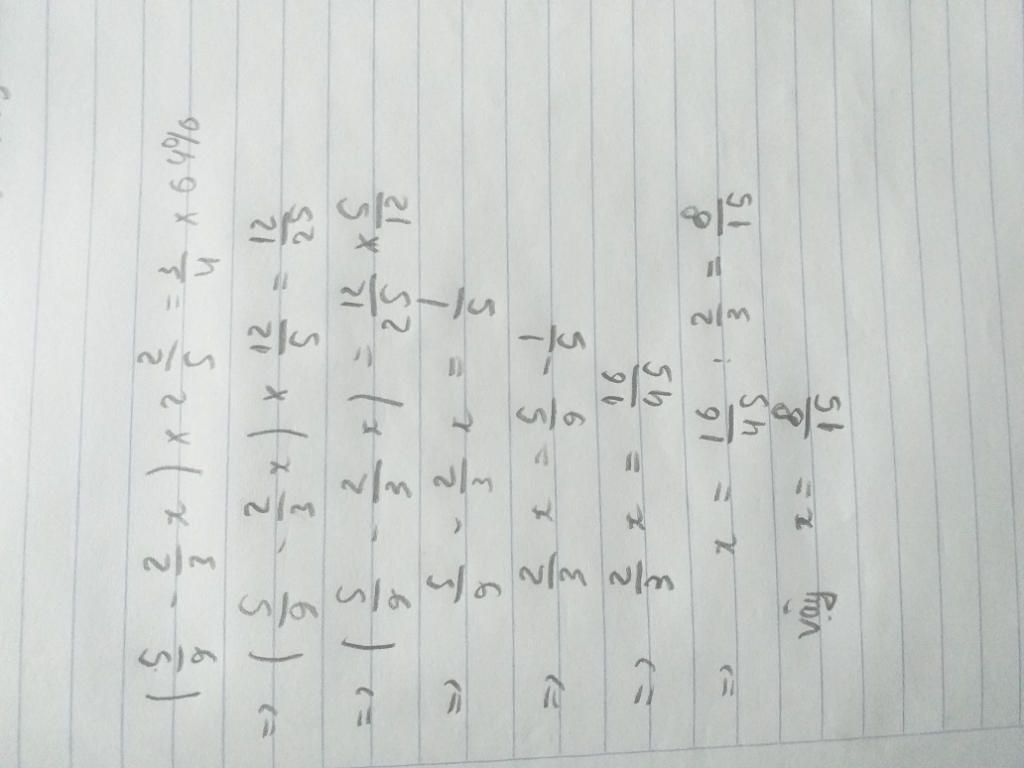 (5/9 - 2/3 x) x 2 2/5 = 3/4 x 64%
=> (5/9 - 2/3 x) x 12/5 = 12/25
=> (5/9 - 2/3 x) = 12/25 x 5/12
=> 5/9 - 2/3 x = 1/5
=> 2/3 x = 5/9 - 1/5
=> 2/3 x = 16/45
=> x = 16/45 : 2/3 = 8/15
Vậy x = 8/15